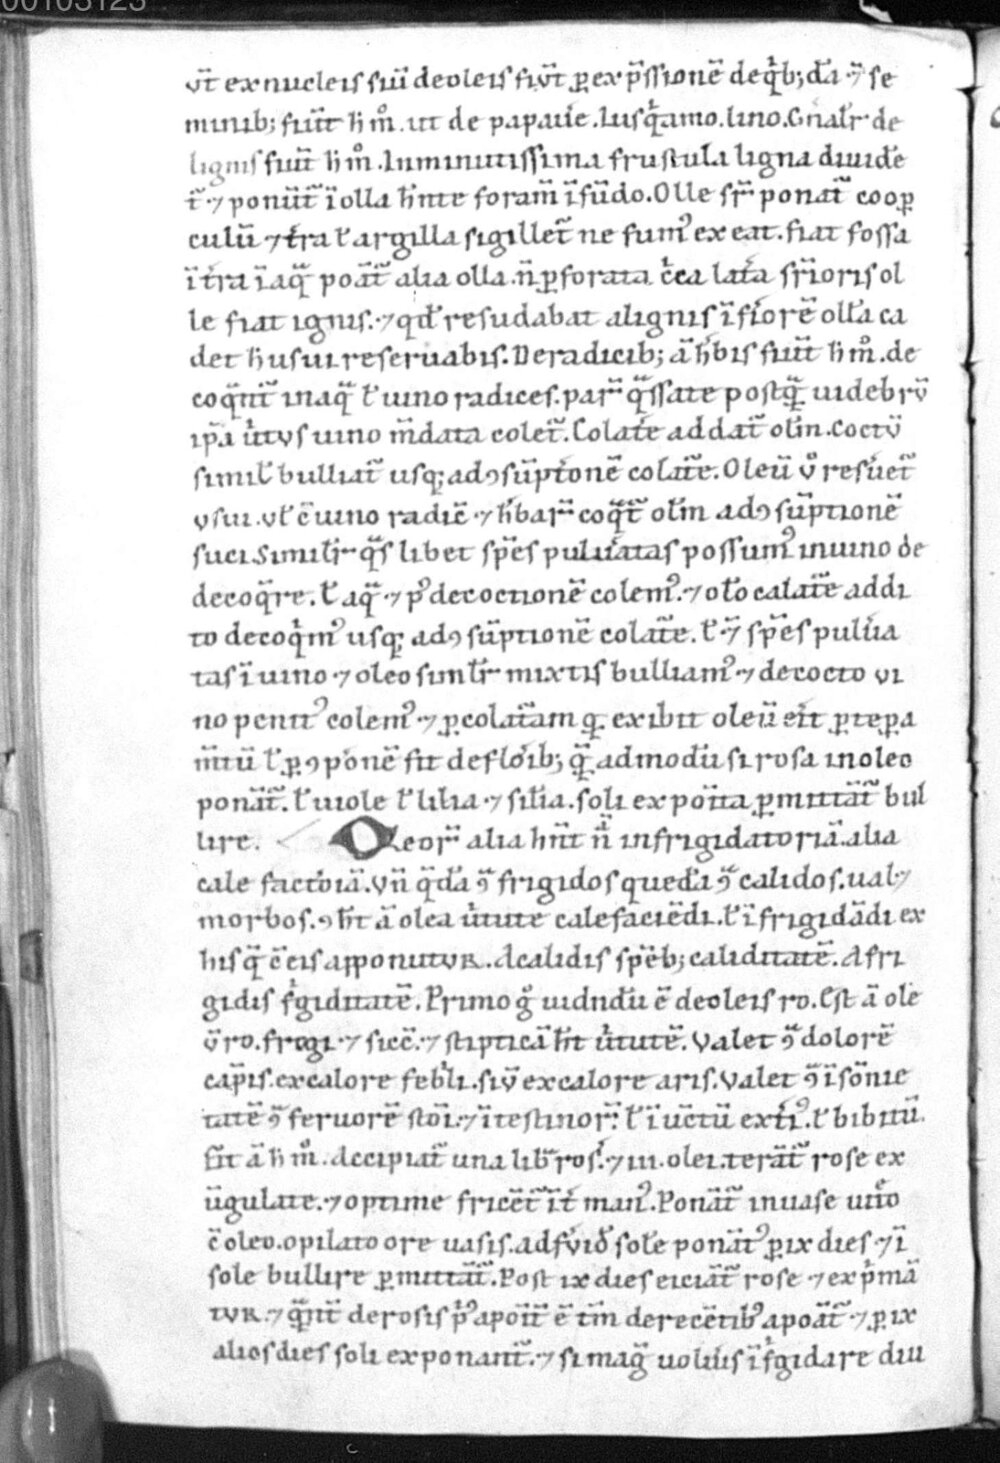 00103123
vt̄ ex nucleis siñ de oleis fiūt ꝑ ex p̄ssionē de q̇b; d̄a ⁊̄ se
minib; fiūt h̄ m̊. ut de papaūe. Iusq̇amo. lino. Gñalr̄ de
lignis fiūt h̄ m̊. In minutissima frustula ligna diuidē
t̄ ⁊ ponūt̄ ī olla h̄nte foram̄ ī fūdo. Olle sr̄ ponat̄ coop̱
culū ⁊ t̄ra ł argilla sigillet̄ ne fumꝰ exeat. fiat fossa
ī t̄ra ī aq̄ poāt̄ alia olla. n̄ ꝑforata c̄ca lat̄a sr̄ioris ol
le fiat ignis. ⁊ qd̄ resudabat a lignis ī fiorē oll̄a ca
det h̄ usui reseruabis. De radicib; ā h̄bis fiūt h̄ m̊. de
coq̄nt̄ in aq̄ ł uino radices. par̄ q̄ssate postq̄ uidebr̄v̄
ip̄a ūtvs uino m̄data colet̄. Colat̄e addat̄ olm̄. Coctū
simil̄ bulliat̄ usq; ad ꝯsūptionē colat̄e. Oleū v̊ resūet̄
vsui. vł c̄ uino radic̄ ⁊ h̄bar̄ coq̄t̄ olm̄ ad ꝯsūptionē
suci. Simil̄r q̄s libet sp̄es puluātas possumꝰ in uino de
decoq̄re. ł aq̄ ⁊ pꝰ decoctionē colemꝰ. ⁊ ol̄o calat̄e addi
to decoq̇mꝰ usq; ad ꝯsūptionē colat̄e. ł ⁊̄ sp̄es pulūa
tas ī uino ⁊ oleo siml̄r mixtis bulliamꝰ ⁊ decocto vi
no penitꝰ colemꝰ ⁊ ꝑ colat̄am q̱ exibit oleū erit p̱tep̱a
m̄tū ł ꝑ ꝯponē fit de flōib; q̄ admodū si rosa in oleo
ponāt̄. ł uiole ł lilia ⁊ sil̄ia. soli expoīta ꝑmittāt̄ bul
lire. Oleor̄ alia hn̄t n̄ infrigidatoriā. alia
cale factoiā. Vn̄ q̄da ꝯ̄ frigidos queda ꝯ̄ calidos. ual⁊
morbos. ꝯ h̄t ā olea ūtute calefaciēdi. ł ī frigidādi ex
his q̄ c̄ eis apponutvr. A calidis sp̄eb; caliditatē. A fri
gidis f̊giditatē. Primo g̊ uidndū ē de oleis ro. Est ā ole
v̄ ro. frogi. ⁊ sicc̄. ⁊ stipticā h̄t ūtutē. Valet ꝯ̄ dolorē
cap̄is. ex calore feb̊li. sīv̄ ex calore aris. Valet ꝯ̄ ī sōnie
tatē ꝯ̄ feruorē stōi. ⁊ ītestinor̄. ł ī uc̄tū ext̄iꝰ. ł bibitū.
fit ā h̄ m̊. Accipiat̄ una libr̄ ros̄. ⁊ iii. olei. terāt̄ rose ex
ūgulate. ⁊ optime fricēt̄ īt̄ manꝰ. Ponāt̄ in uase uit̊o
c̄ oleo. opilato ore uasis. ad fv̊id̄ sol̄e ponāt̄ꝰ ꝑ ix dies ⁊ ī
sole bullire ꝑmittāt̄. Post ix dies eiciāt̄ rose ⁊ ex p̊mā
tvr. ⁊ q̄nt̄ de rosis pꝰ apoīt̄ ē tm̄ de recētibꝰ apoāt̄ ⁊ ꝑ ix
alios dies soli exponant̄. ⁊ si maḡ uoluis ī f̊gidare diu